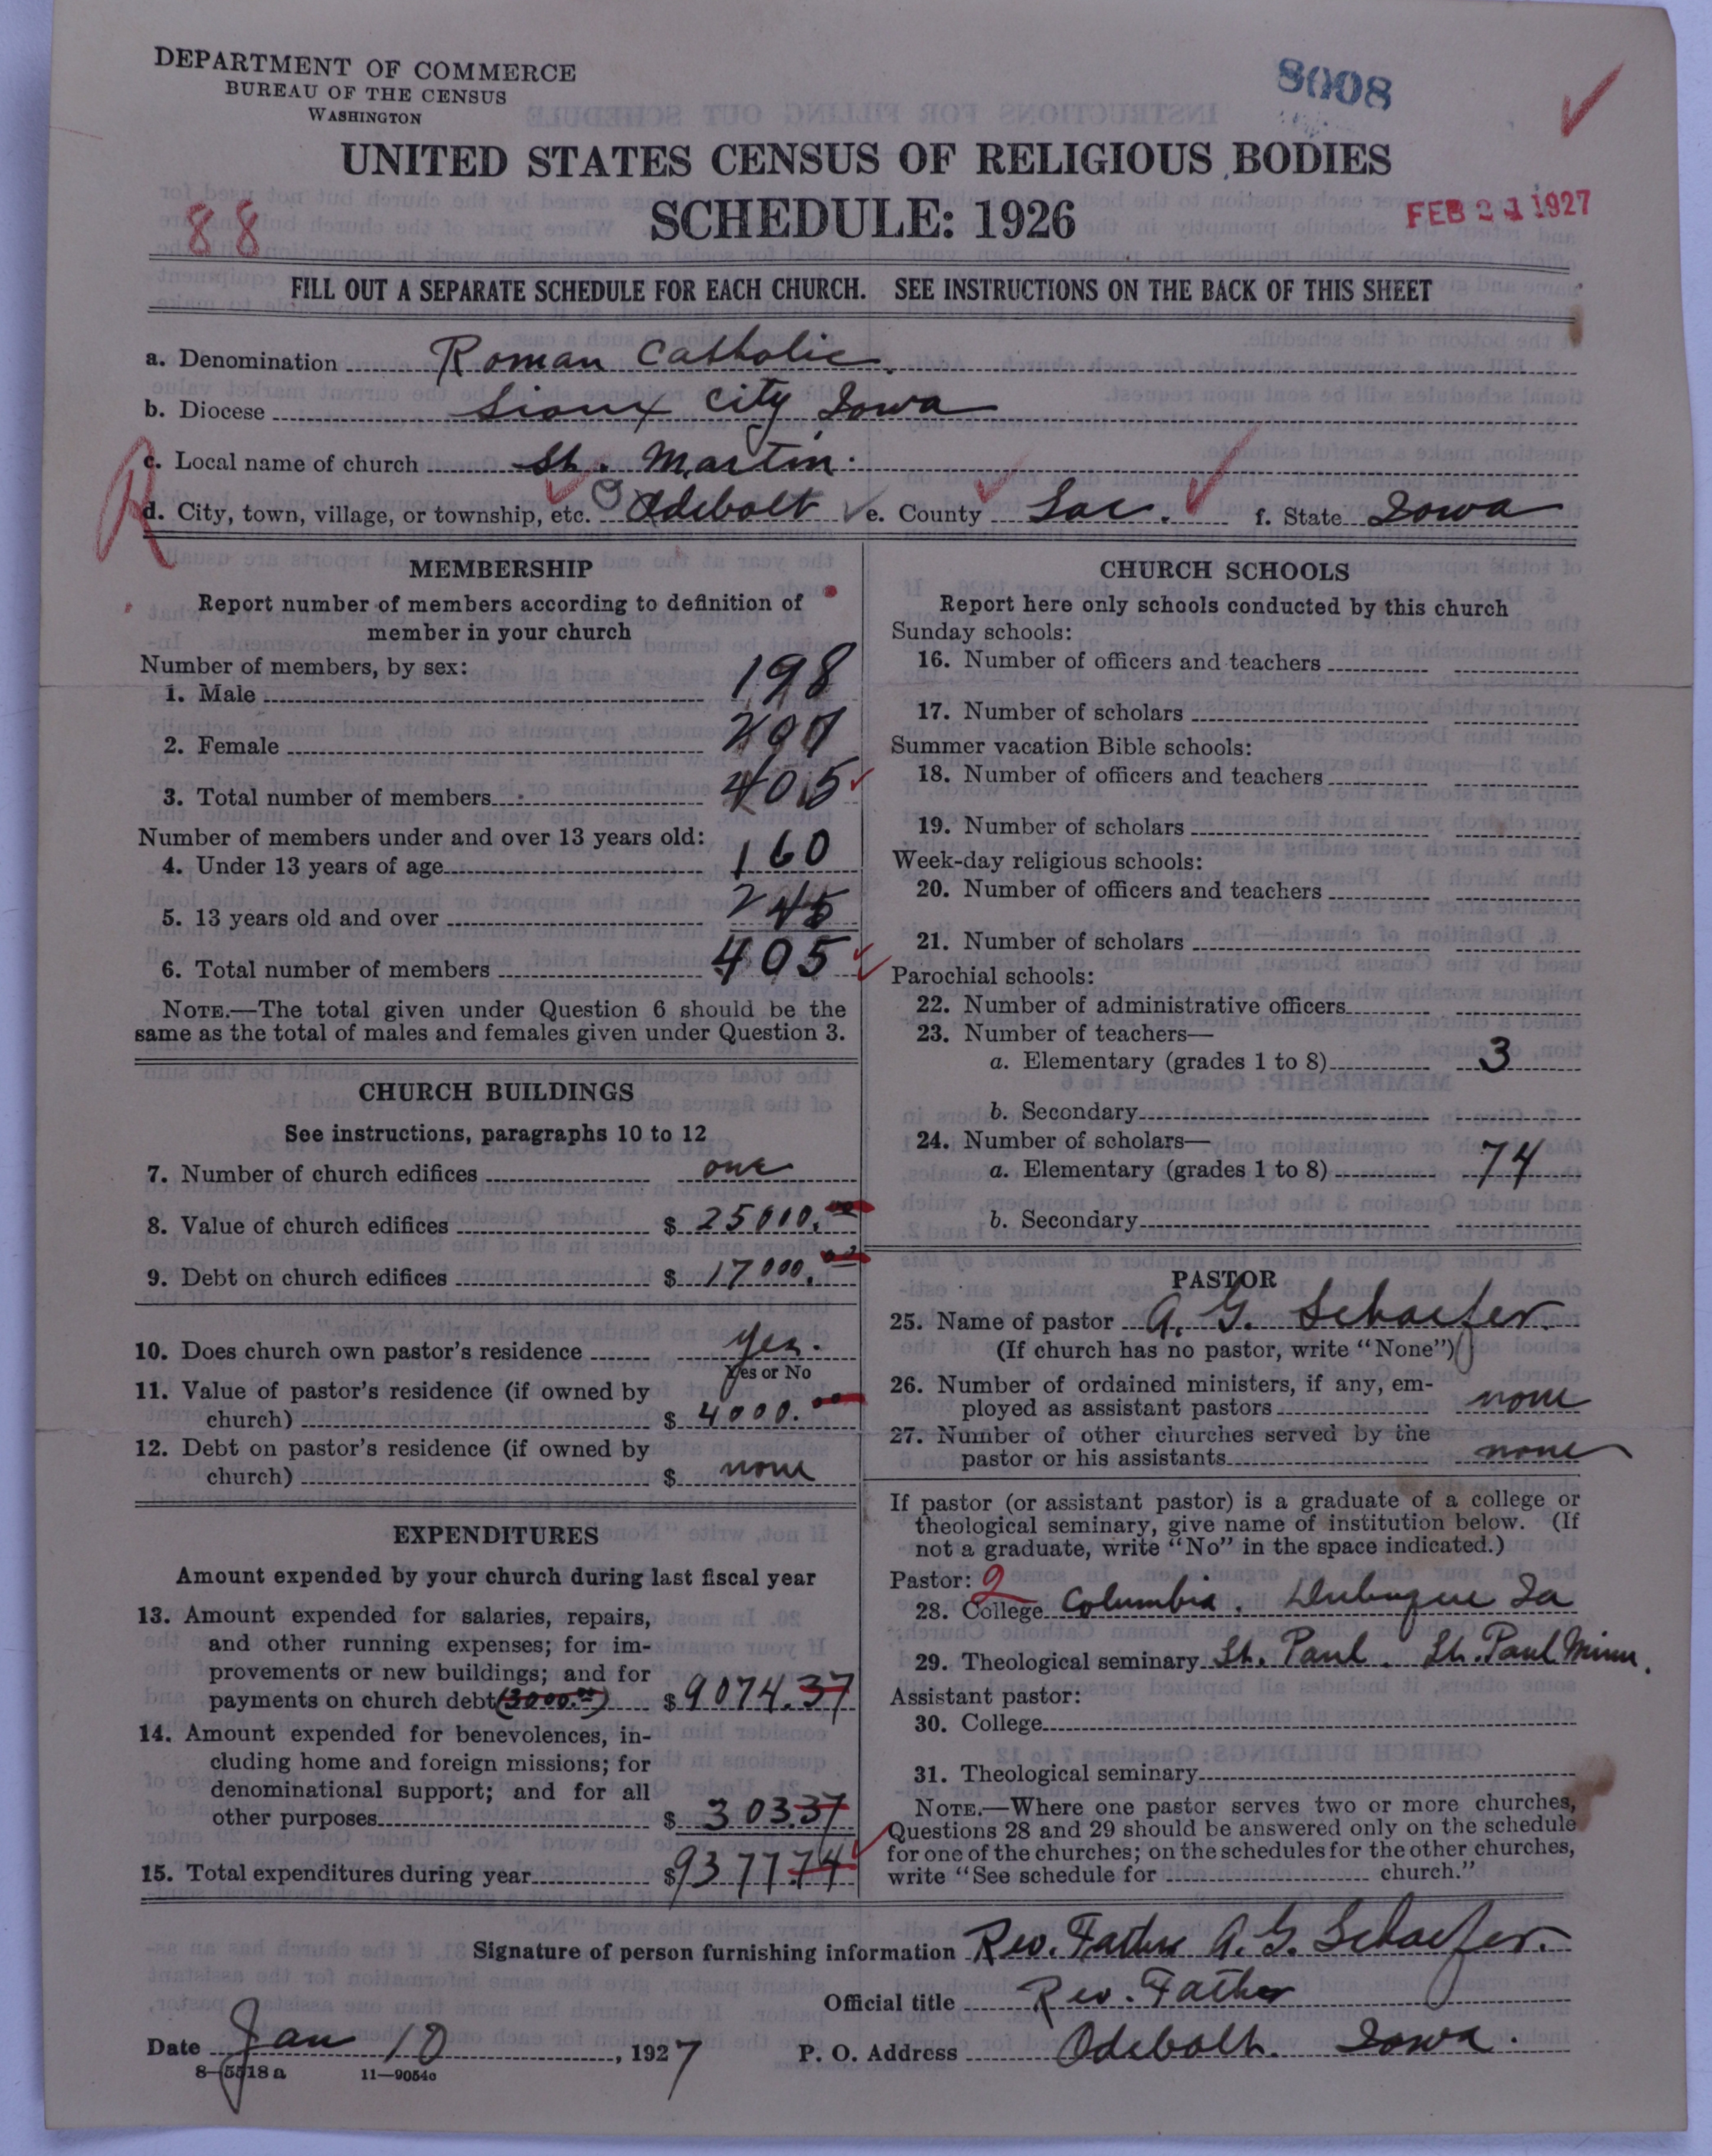 DEPARTMENT OF COMMERCE
BUREAU OF THE CENSUS
WASHINGTON
8008
UNITED STATES CENSUS OF RELIGIOUS BODIES
SCHEDULE: 1926
88
FEB 21 1927
FILL OUT A SEPARATE SCHEDULE FOR EACH CHURCH. SEE INSTRUCTIONS ON THE BACK OF THIS SHEET
a. Denomination Roman Catholic
b. Diocese Sioux City Iowa
c. Local name of church St. Martin.
d. City, town, village, or township, etc. Odebolt e. County Sac. f. State Iowa
R
MEMBERSHIP
Report number of members according to definition of
member in your church
Number of members, by sex:
1. Male 198
2. Female 207
3. Total number of members 405
Number of members under and over 13 years old:
4. Under 13 years of age 160
5. 13 years old and over 245
6. Total number of members 405
NOTE.—The total given under Question 6 should be the
same as the total of males and females given under Question 3.
CHURCH BUILDINGS
See instructions, paragraphs 10 to 12
7. Number of church edifices one
8. Value of church edifices $ 25000.00
9. Debt on church edifices $ 17000.00
10. Does church own pastor's residence yes.
Yes or No
11. Value of pastor's residence (if owned by
church) $ 4000.00
12. Debt on pastor's residence (if owned by
church) $ none
EXPENDITURES
Amount expended by your church during last fiscal year
13. Amount expended for salaries, repairs,
and other running expenses; for im-
provements or new buildings; and for
payments on church debt (3000.00) $ 9074.37
14. Amount expended for benevolences, in-
cluding home and foreign missions; for
denominational support; and for all
other purposes $ 303.37
15. Total expenditures during year $ 9377.74
CHURCH SCHOOLS
Report here only schools conducted by this church
Sunday schools:
16. Number of officers and teachers
17. Number of scholars
Summer vacation Bible schools:
18. Number of officers and teachers
19. Number of scholars
Week-day religious schools:
20. Number of officers and teachers
21. Number of scholars
Parochial schools:
22. Number of administrative officers
23. Number of teachers—
a. Elementary (grades 1 to 8) 3
b. Secondary
24. Number of scholars—
a. Elementary (grades 1 to 8) 74
b. Secondary
PASTOR
25. Name of pastor A. G. Schaefer.
(If church has no pastor, write "None")
26. Number of ordained ministers, if any, em-
ployed as assistant pastors none
27. Number of other churches served by the
pastor or his assistants none
If pastor (or assistant pastor) is a graduate of a college or
theological seminary, give name of institution below. (If
not a graduate, write "No" in the space indicated.)
Pastor: 2
28. College Columbia. Dubuque Ia
29. Theological seminary St. Paul. St. Paul Minn.
Assistant pastor:
30. College
31. Theological seminary
NOTE.—Where one pastor serves two or more churches,
Questions 28 and 29 should be answered only on the schedule
for one of the churches; on the schedules for the other churches,
write "See schedule for church."
Signature of person furnishing information Rev. Father A. G. Schaefer.
Official title Rev. Father
Date Jan 10, 1927 P. O. Address Odebolt. Iowa.
8-5518 a 11-9054c